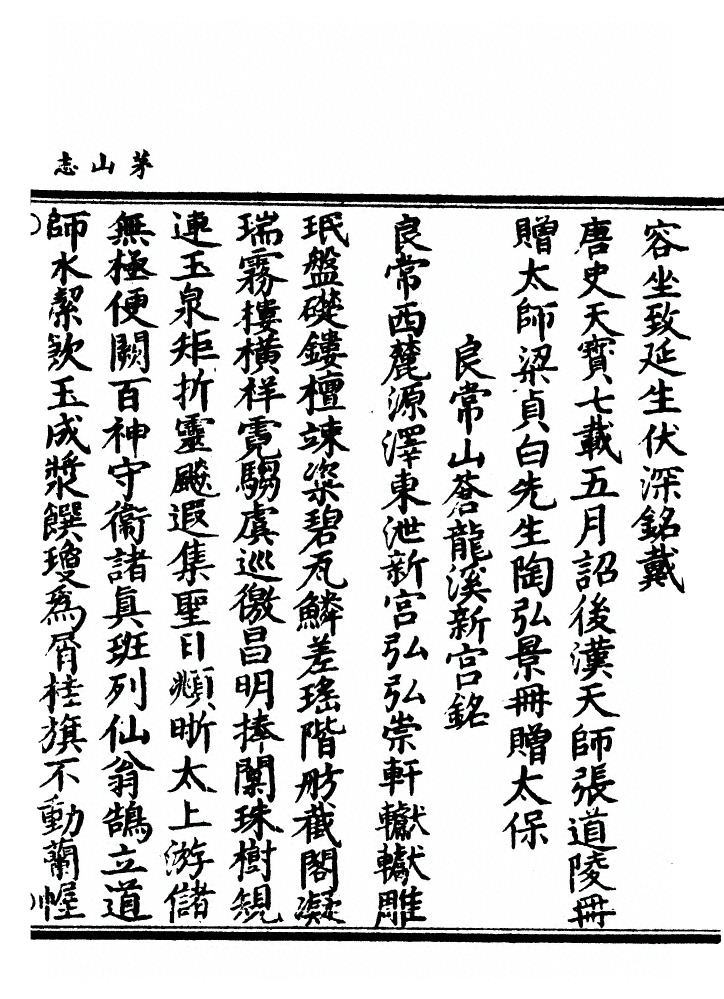 茅山志
容坐致延生伏深銘戴
唐史天寶七載五月詔後漢天師張道陵冊
贈太師梁貞白先生陶弘景冊贈太保
良常山蒼龍溪新宮銘
良常西麓源澤東泄新宮弘弘崇軒雕
珉盤礎鏤檀竦楶碧瓦鱗差瑤階肪截閣凝
瑞霧樓橫祥霓騶虞巡徼昌明捧闑珠樹規
連玉泉矩折靈飈遐集聖日頫晰太上游儲
無極便闕百神守衞諸眞班列仙翁鵠立道
師水潔飲玉成漿饌瓊爲屑桂旗不動蘭幄